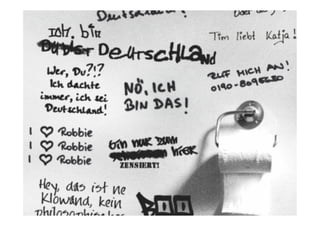 Deutschland!
Ich bin
Deutschland
Tim liebt Katja!
Wer, Du?!?
Ich dachte
immer, ich sei
Deutschland!
NÖ, ICH
BIN DAS!
RUF MICH AN!
I ♥ Robbie
I ♥ Robbie
I ♥ Robbie
bin nur zum
hier
ZENSIERT!
Hey, das ist ne
Klowand, kein
philosophisches
BOO